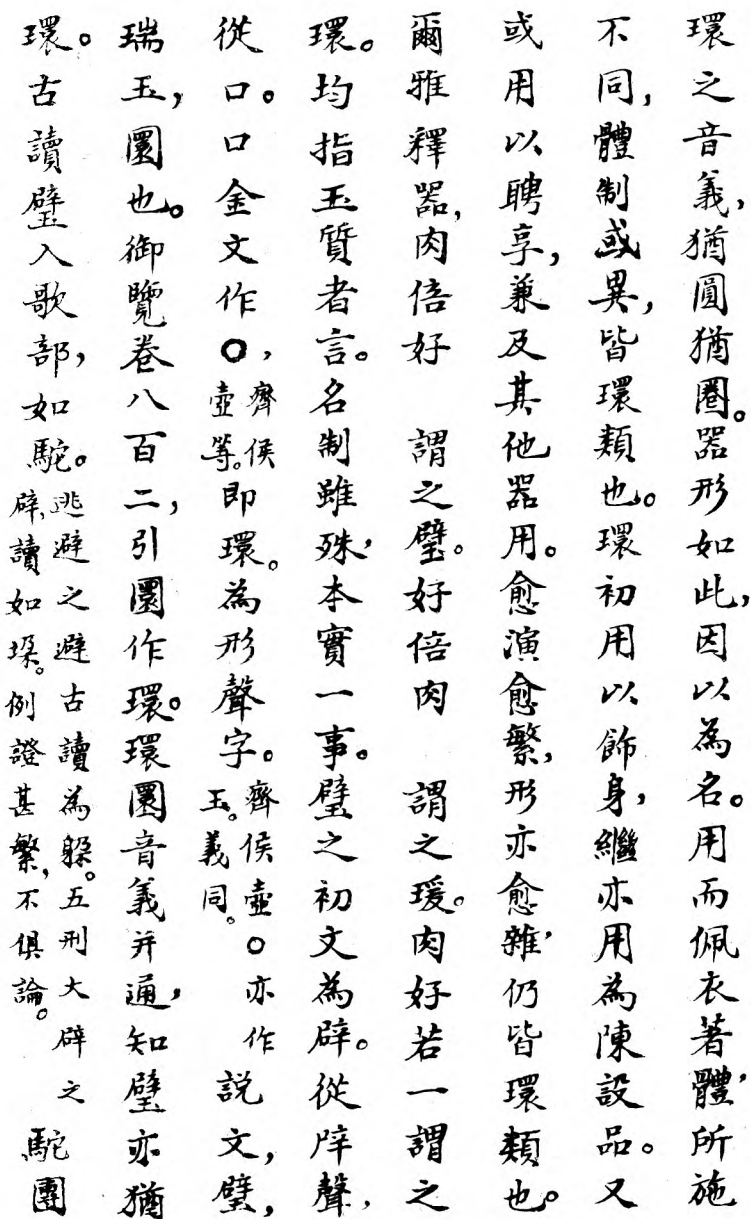 環之音義，猶圓猶圈。器形如此，因以為名。用而佩衣著體，所施
不同，體制或異，皆環類也。環初用以飾身，繼亦用為陳設品。又
或用以聘享，兼及其他器用。愈演愈繁，形亦愈雜，仍皆環類也。
爾雅釋器，肉倍好　謂之璧。好倍肉　謂之瑗。肉好若一謂之
環。均指玉質者言。名制雖殊，本實一事。璧之初文為辟。從㡿聲，
從口。口金文作〇，齊侯壺等。即環。為形聲字。齊侯壺〇亦作玉。義同。說文，璧，
瑞玉，圜也。御覽卷八百二，引圜作環。環圜音義并通，知璧亦猶
環。古讀璧入歌部，如駝。逃避之避古讀為躲。五刑大辟之辟，讀如垛。例證甚繁，不俱論。駝團